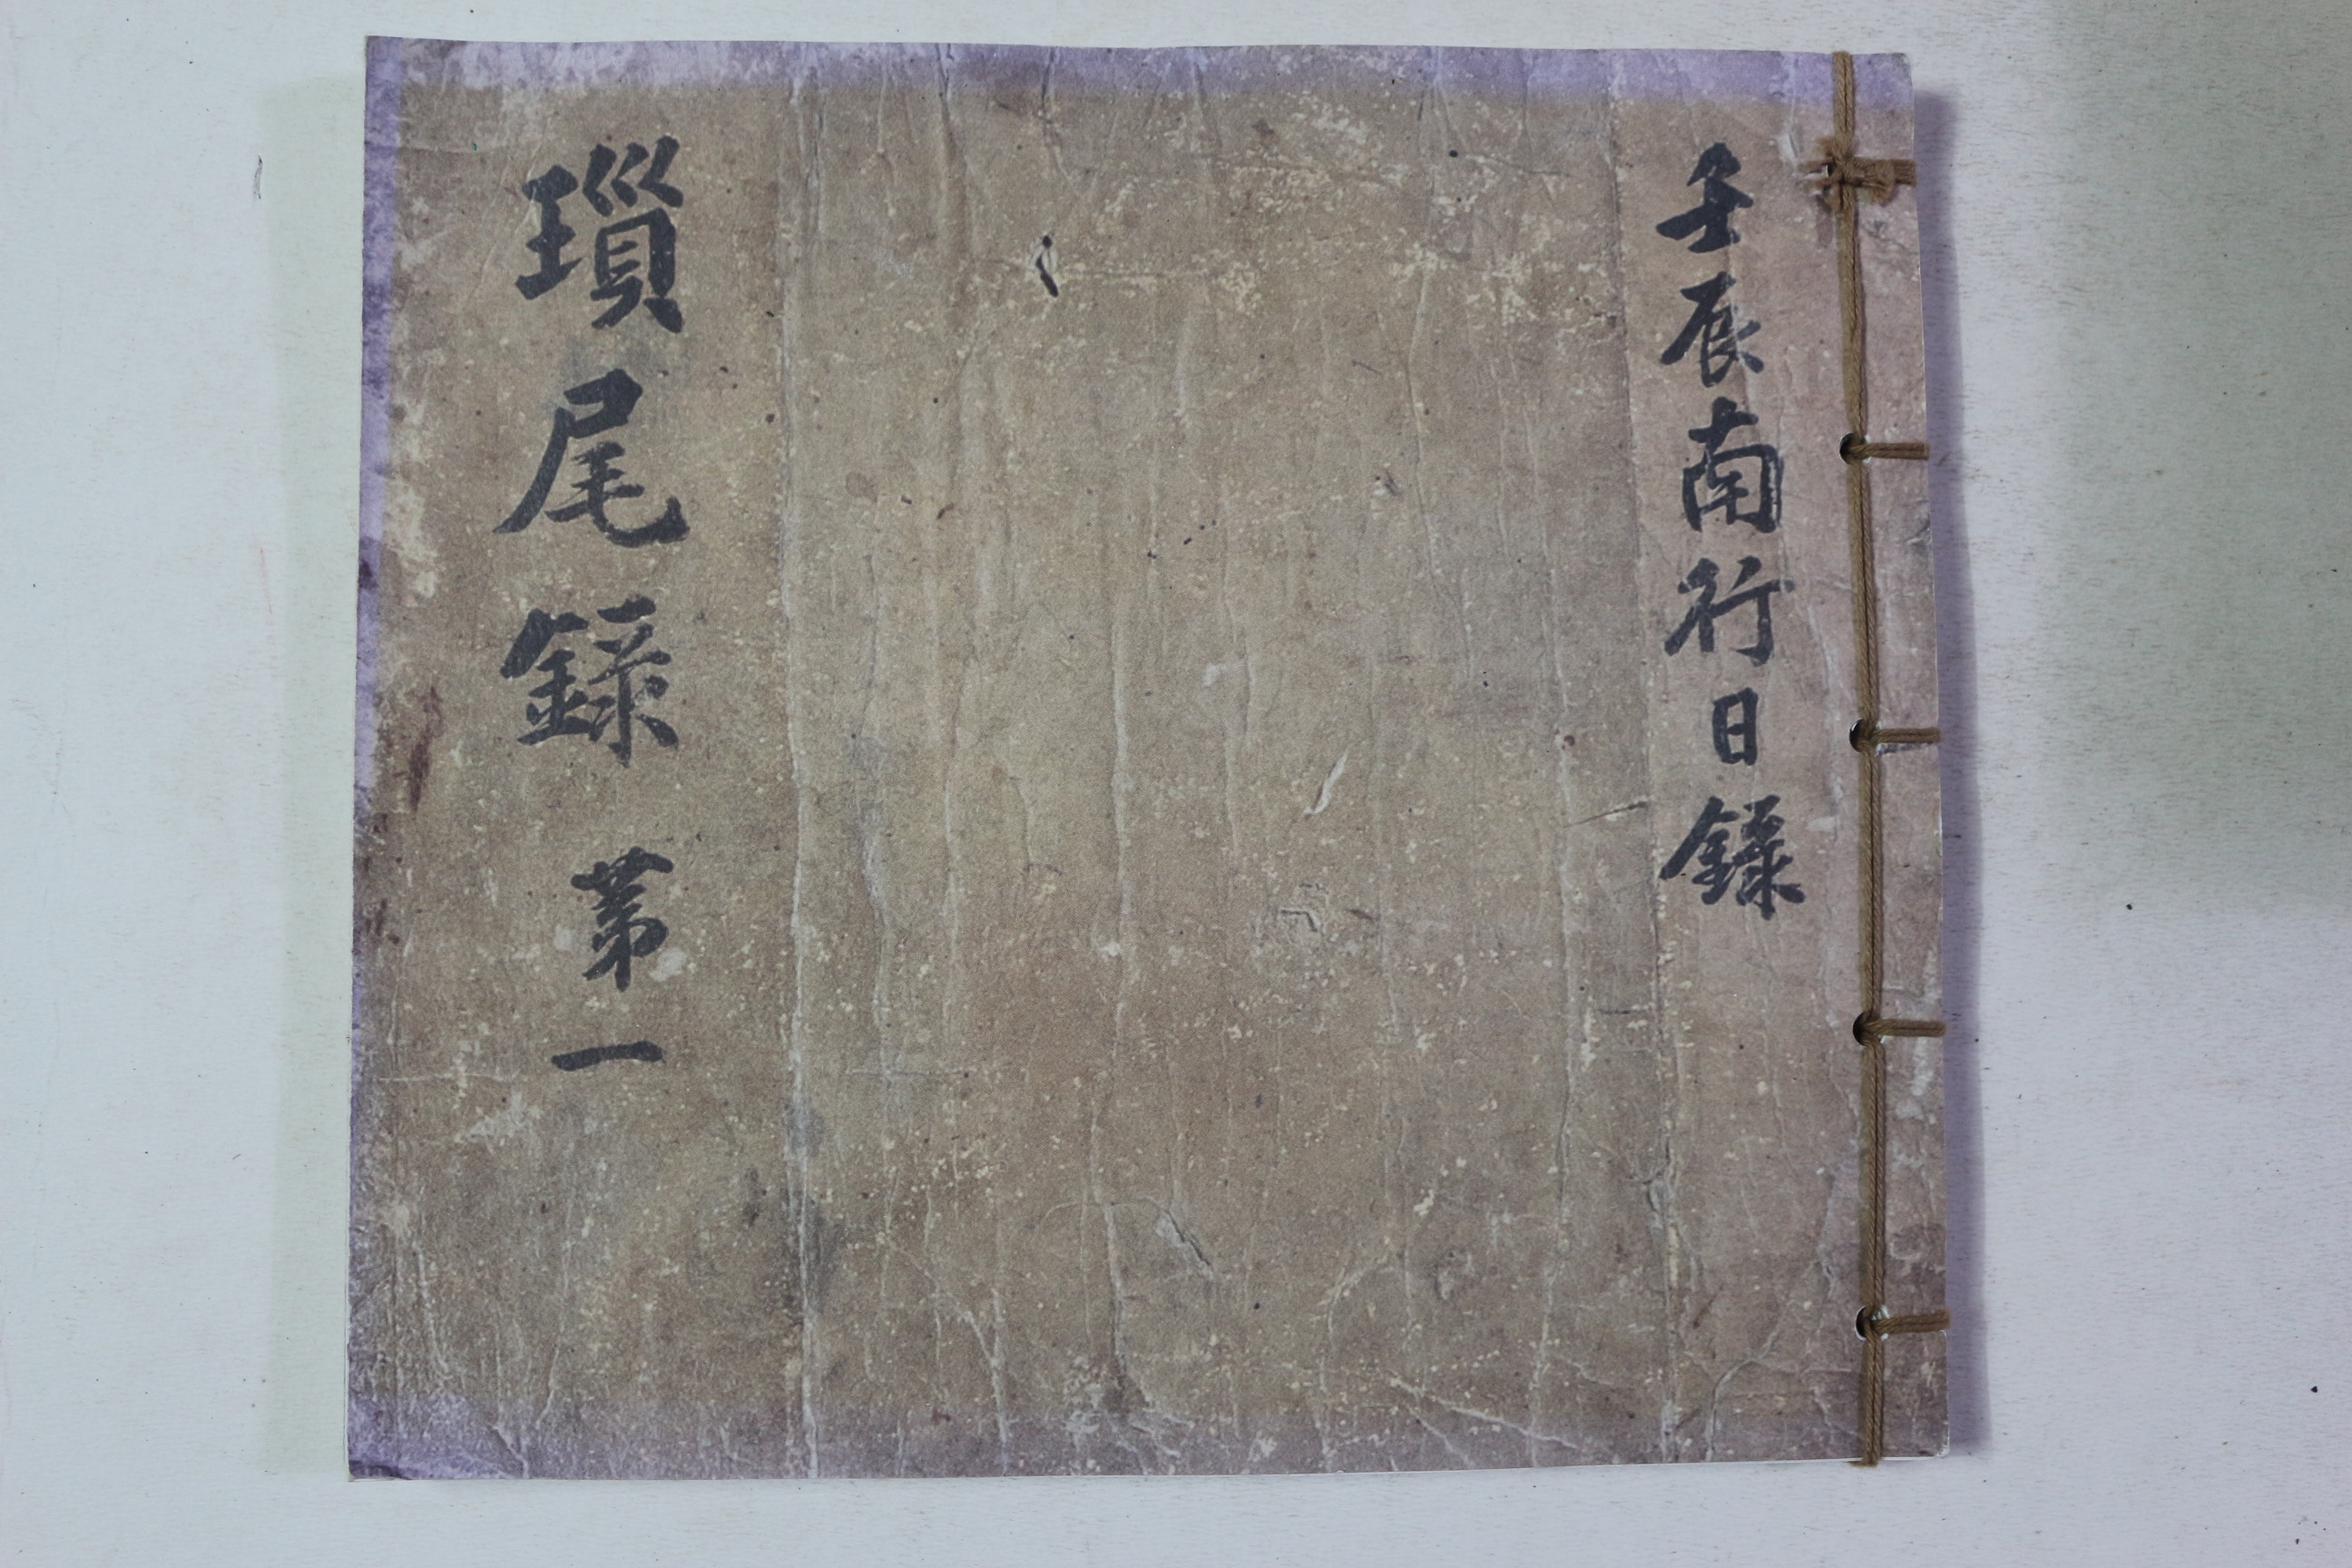 壬辰南行日錄
瑣尾錄 第一